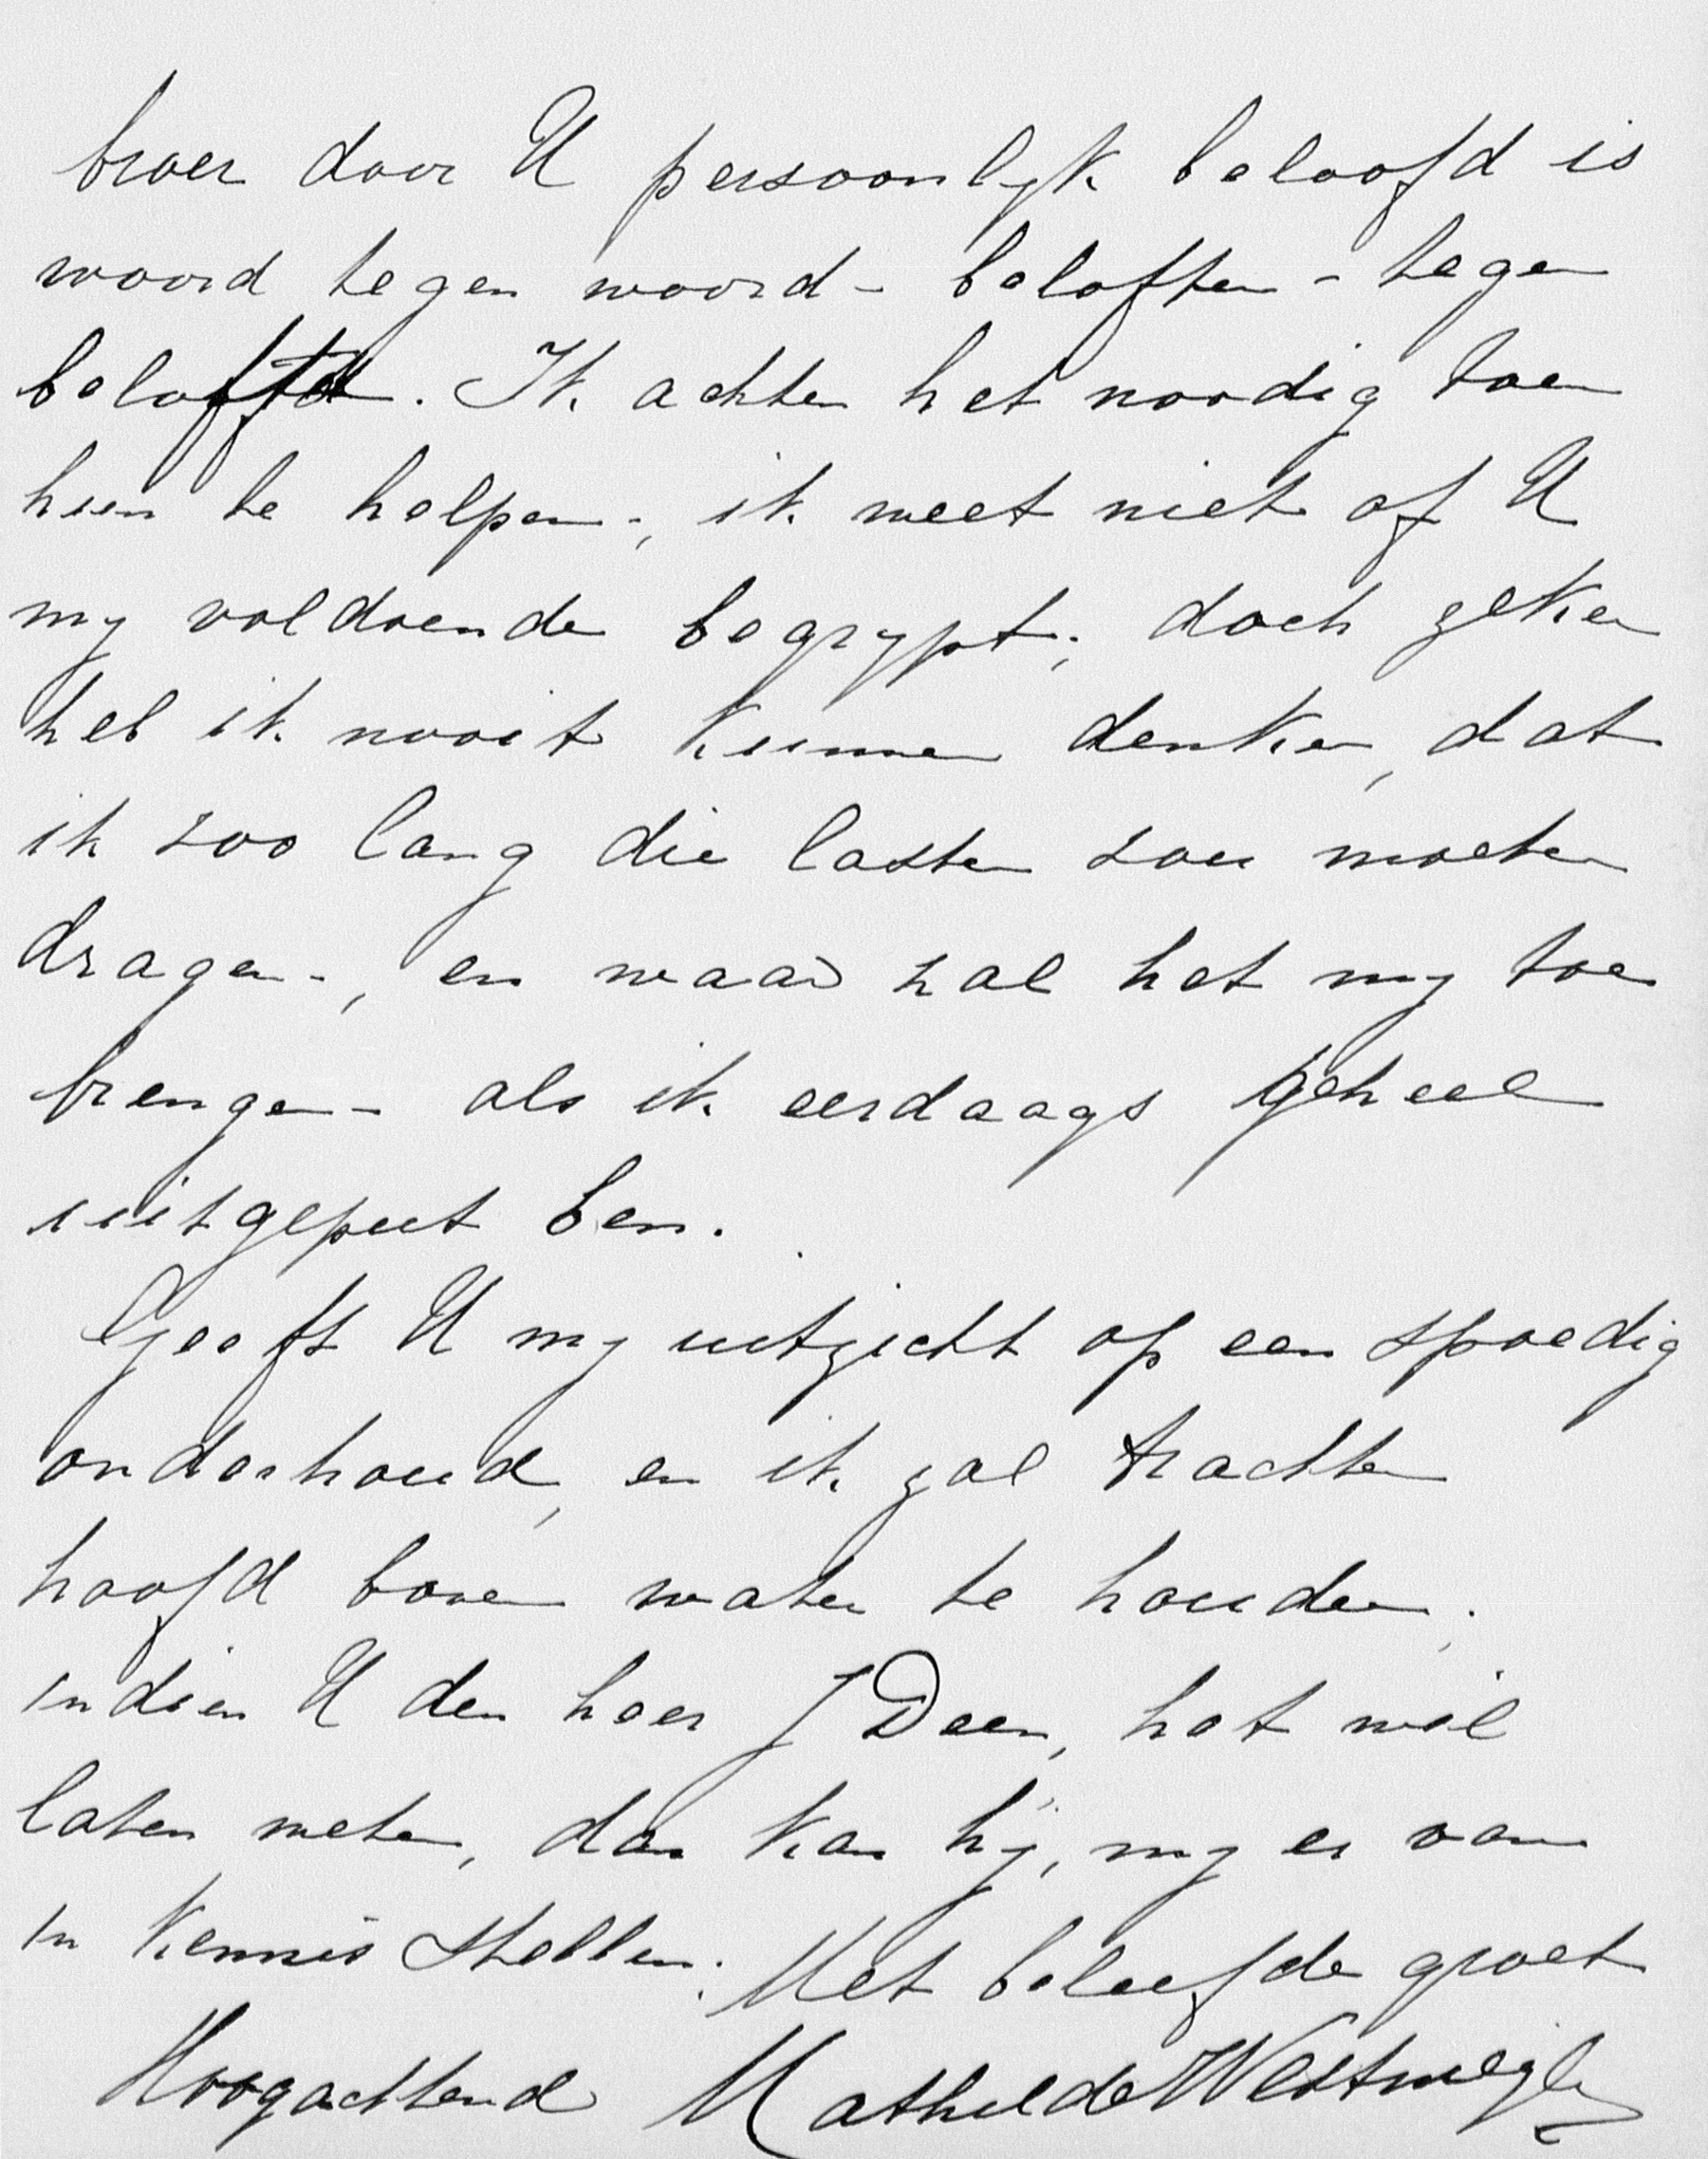 broer door U persoonlyk beloofd is
woord tegen woord - beloften - tegen
belofte. Ik achten het noodig toen
hun te helpen -, ik weet niet of U
my voldoende begrypt; doch zeker
heb ik nooit kunnen denken, dat
ik zoo lang die lasten zou moeten
dragen -, en waar zal het my toe
brengen - als ik eerdaags geheel
uitgeput ben.
Geeft U my uitzicht op een spoedig
onderhoud, en ik zal trachten
hoofd boven water te houden;
indien U den heer J Deen, het wil
laten weten, dan kan hij, my er van
in kennis stellen. Met beleefde groet
Hoogachtend Mathilde